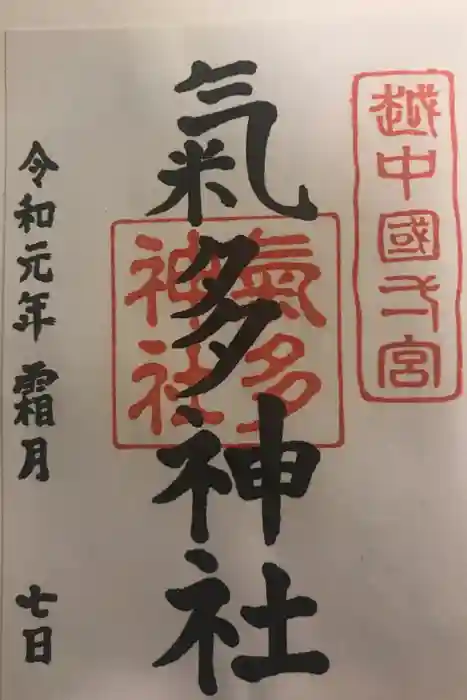 越中國弌宮
氣多神社
氣多
神社
令和元年霜月 七日